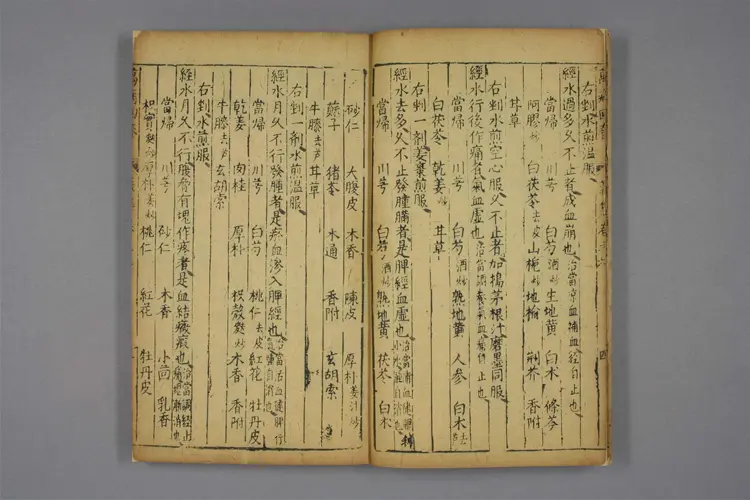 右剉水煎温服
經水過多久不止者成血崩也治當凉血補血從自止也
當歸 川芎 白芍酒炒 生地黄 白朮 條芩
阿膠炒 白茯苓去皮 山梔炒 地榆 荆芥 香附
甘草
右剉水煎空心服久不止者加搗茅根汁磨墨同服
經水行後作痛者氣血虚也治當調養氣血痛自止也
當歸 川芎 白芍酒炒 熟地黄 人參 白朮
白茯苓 乾姜炒 甘草
右剉一劑姜棗煎服
經水去多久不止發腫滿者是脾經血虚也治當補血健脾
當歸 川芎 白芍酒炒 熟地黄 茯苓 白朮
砂仁 大腹皮 木香 陳皮 厚朴姜汁炒
蘇子 猪苓 木通 香附 玄胡索
牛膝去芦 甘草
右剉一劑水煎温服
經水月久不行發腫者是瘀血滲入脾經也治當活血健脾行
當歸 川芎 白芍 桃仁去皮 紅花 牡丹皮
乾姜 肉桂 厚朴 枳殼麩炒 木香 香附
牛膝去芦 玄胡索
右剉水煎服
經水月久不行腹脅有塊作疼者是血結癥瘕也治當調經止痛
當歸 川芎 砂仁 木香 小茴 乳香
枳實麩炒 厚朴姜炒 桃仁 紅花 牡丹皮